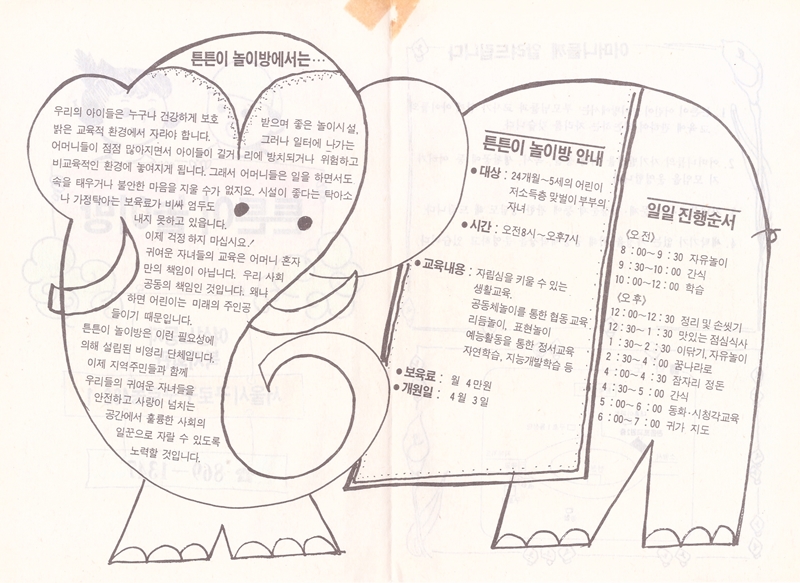 튼튼이 놀이방에서는…
우리의 아이들은 누구나 건강하게 보호 받으며 좋은 놀이시설,
밝은 교육적 환경에서 자라야 합니다. 그러나 일터에 나가는
어머니들이 점점 많아지면서 아이들이 길거리에 방치되거나 위험하고
비교육적인 환경에 놓여지게 됩니다. 그래서 어머니들은 일을 하면서도
속을 태우거나 불안한 마음을 지울 수가 없지요. 시설이 좋다는 탁아소
나 가정탁아는 보육료가 비싸 엄두도
내지 못하고 있읍니다.
이제 걱정하지 마십시요!
귀여운 자녀들의 교육은 어머니 혼자
만의 책임이 아닙니다. 우리 사회
공동의 책임인 것입니다. 왜냐
하면 어린이는 미래의 주인공
들이기 때문입니다.
튼튼이 놀이방은 이런 필요성에
의해 설립된 비영리 단체입니다.
이제 지역주민들과 함께
우리들의 귀여운 자녀들을
안전하고 사랑이 넘치는
공간에서 훌륭한 사회의
일꾼으로 자랄 수 있도록
노력할 것입니다.
튼튼이 놀이방 안내
● 대상 : 24개월~5세의 어린이
저소득층 맞벌이 부부의
자녀
● 시간 : 오전8시~오후7시
● 교육내용 : 자립심을 키울 수 있는
생활교육.
공동체놀이를 통한 협동교육
리듬놀이, 표현놀이
예능활동을 통한 정서교육
자연학습, 지능개발학습 등
● 보육료 : 월 4만원
● 개원일 : 4월 3일
일일 진행순서
〈오전〉
8 : 00~9 : 30 자유놀이
9 : 30~10 : 00 간식
10 : 00~12 : 00 학습
〈오후〉
12 : 00~12 : 30 정리 및 손씻기
12 : 30~1 : 30 맛있는 점심식사
1 : 30~2 : 30 이닦기, 자유놀이
2 : 30~4 : 00 꿈나라로
4 : 00~4 : 30 잠자리 정돈
4 : 30~5 : 00 간식
5 : 00~6 : 00 동화·시청각교육
6 : 00~7 : 00 귀가 지도